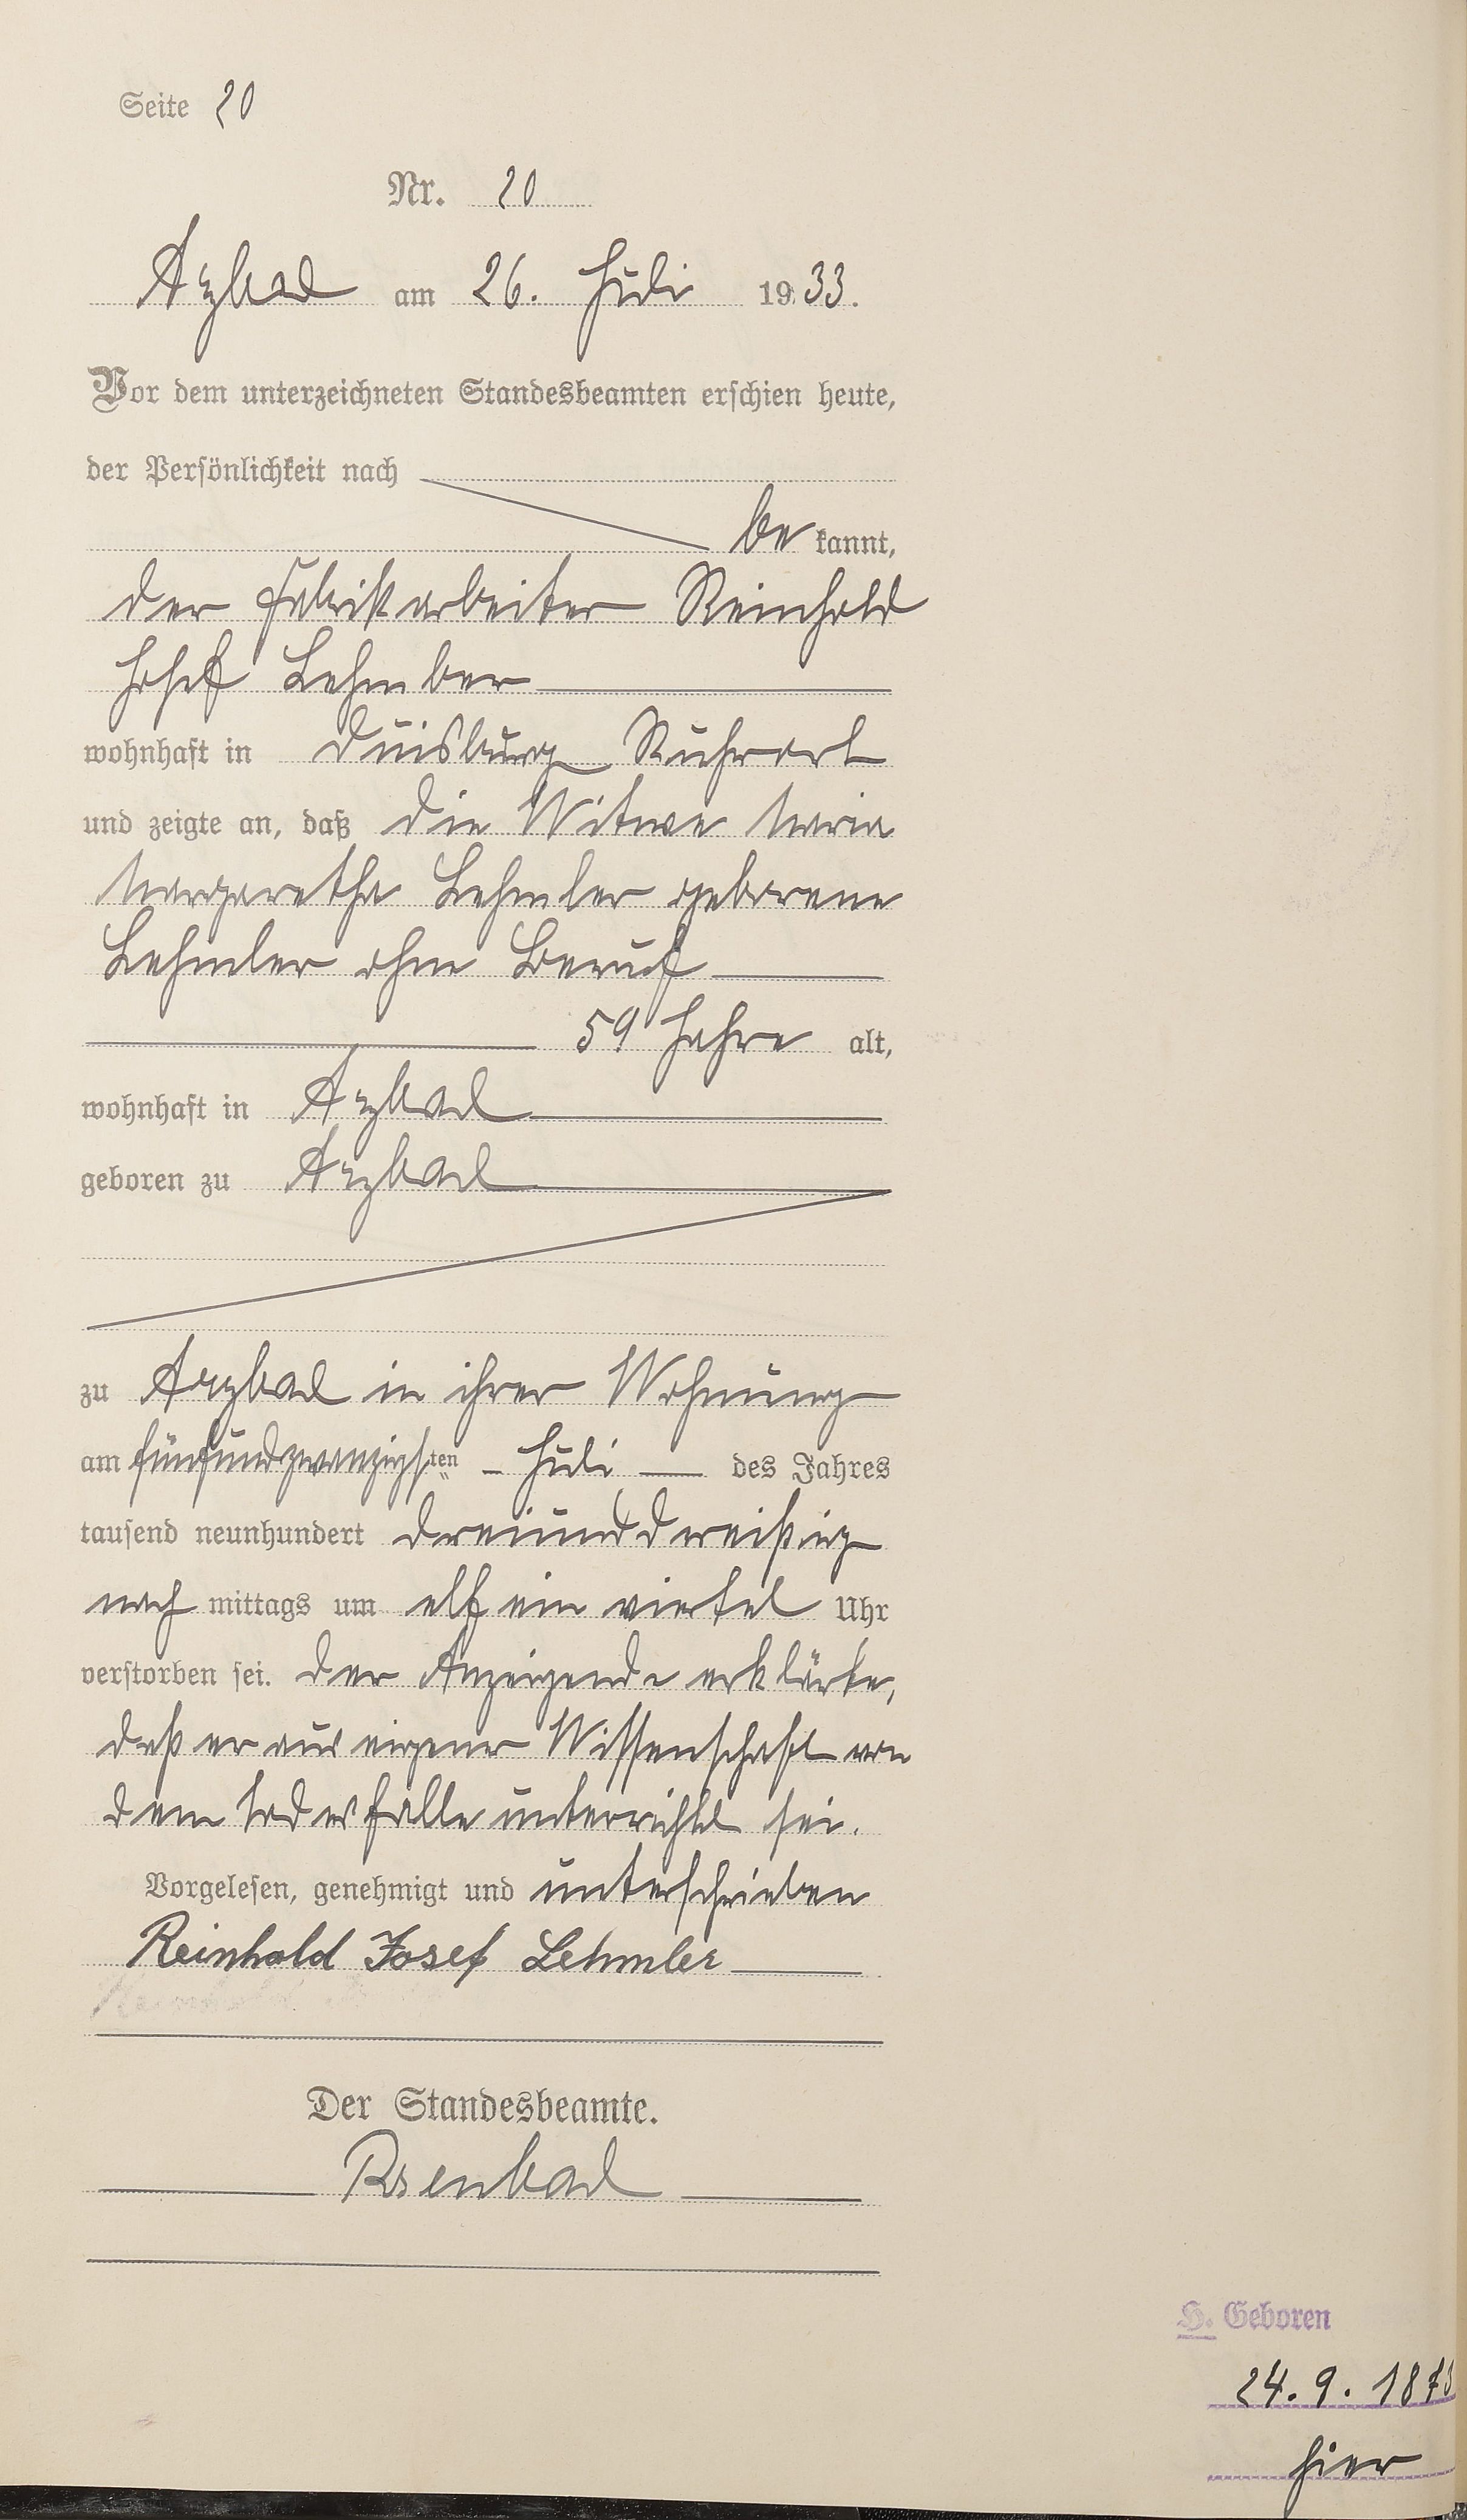 Seite 20
Nr. 20
Arzbach am 26. Juli 1933.
Vor dem unterzeichneten Standesbeamten erschien heute,
der Persönlichkeit nach
be kannt,
der Fabrikarbeiter Reinhold
Josef Lehmler
wohnhaft in Duisburg Ruhrort
und zeigte an, daß die Witwe Maria
Margaretha Lehmler geborene
Lehmler ohne Beruf
59 Jahre alt,
wohnhaft in Arzbach
geboren zu Arzbach
zu Arzbach in ihrer Wohnung
am fünfundzwanzigsten Juli des Jahres
tausend neunhundert dreiunddreißig
nach mittags um elf ein viertel Uhr
verstorben sei. Der Anzeigende erklärte,
daß er aus eigener Wissenschaft von
dem Todesfalle unterrichtet sei.
Vorgelesen, genehmigt und unterschrieben
Reinhold Josef Lehmler
Der Standesbeamte.
H. Geboren
24. 9. 1873
hier